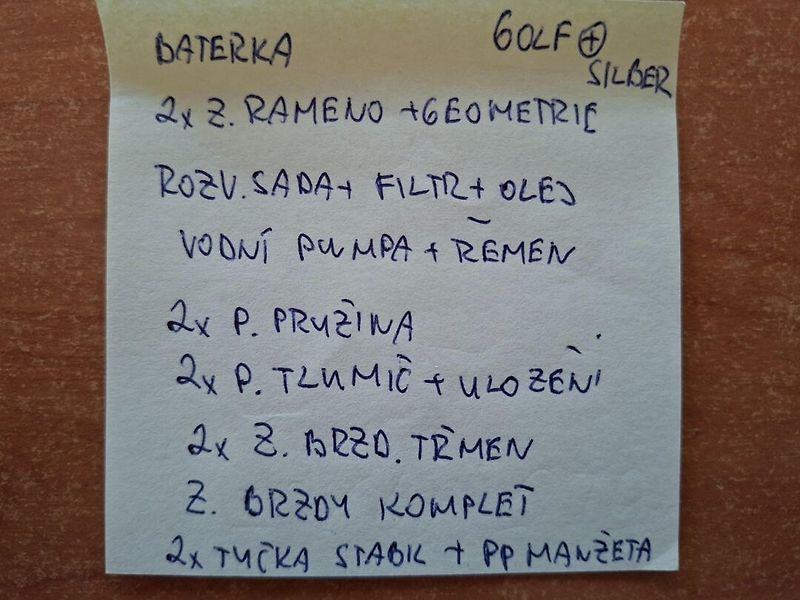 BATERKA GOLF ⊕
SILBER
2x Z. RAMENO + GEOMETRIE
ROZV. SADA + FILTR + OLEJ
VODNÍ PUMPA + ŘEMEN
2x P. PRUŽINA
2x P. TLUMIČ + ULOŽENÍ
2x Z. BRZD. TŘMEN
Z. BRZDY KOMPLET
2x TYČKA STABIL + PP MANŽETA